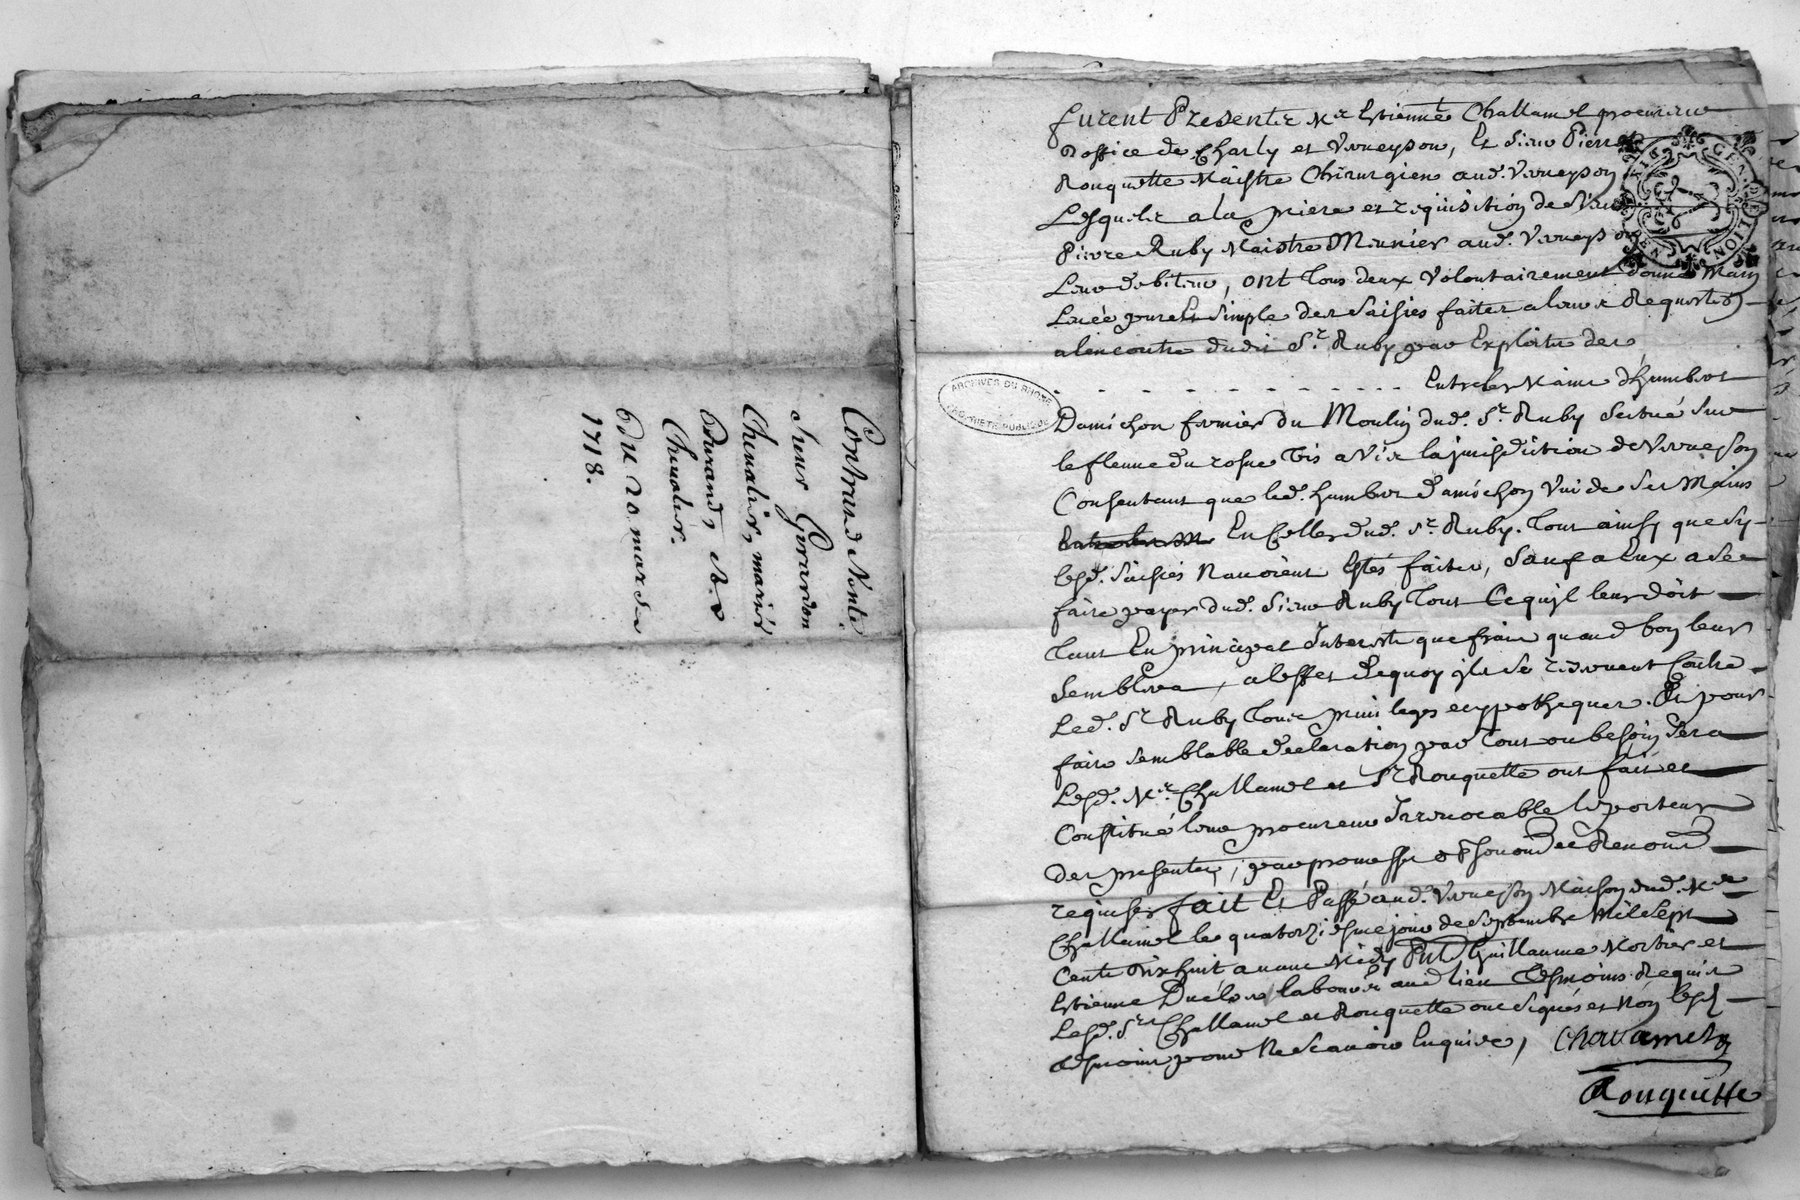 Contract de Vente
Sieur Girardon
Chevalier, mariés
Durand, et
Chevalier.
Du 20 mars
1718.
furent Presents Mr Estienne Challamel procureur
d'office de Charly et Verneyson, Et Sieur Pierre
Rouquette Maistre Chirurgien aud. Verneyson
Lesquels a la priere et requisition de Sieur
Pierre Ruby Maistre Meunier aud. Verneyson
Leur debiteur, ont tous deux volontairement donné Main
Levée pure et simple des saisies faites a leurs Requestes
alencontre dudit Sr. Ruby par Exploits des
- - - - - - - - - - - - - Entre les Mains d'humbert
Damichon fermier du Moulin dud. Sr. Ruby scitué sur
le fleuve du rosne vis a vis la jurisdiction de Verneson
Consentant que led. humbert damichon vuide ses Mains
En Celles dud. Sr. Ruby. tout ainsy que sy
lesd. saisies Navoient Estés faites, sauf a Eux a se
faire payer dud. sieur Ruby tout Ce quil leur doit
tant En principal Interests que frais quand bon leur
semblera, a leffet dequoy ils se reservent Contre
Led. Sr Ruby tous privileges et ypotheques. Et pour
faire semblable declaration par tout ou besoin sera
Lesd. Mr. Challamel et Sr Rouquette ont fait et
Constitué leur procureur Irrevocable le porteur
des presentes, par promesse
requises fait Et Passé aud. Verneson Maison dud. Mr
Challamel le quatorziesme jour de septembre Mil sept
Cents dix huit avant Midy Guillaume Mortier et
Estienne laboureur aud lieu tesmoins Requis
Lesd. Srs Challamel et Rouquette ont signés et Non lesd.
tesmoins pour Ne Scavoir Enquis,
Chalamel
Rouquette
GEN. DE LION
ARCHIVES DU RHONE
PROPRIETE PUBLIQUE